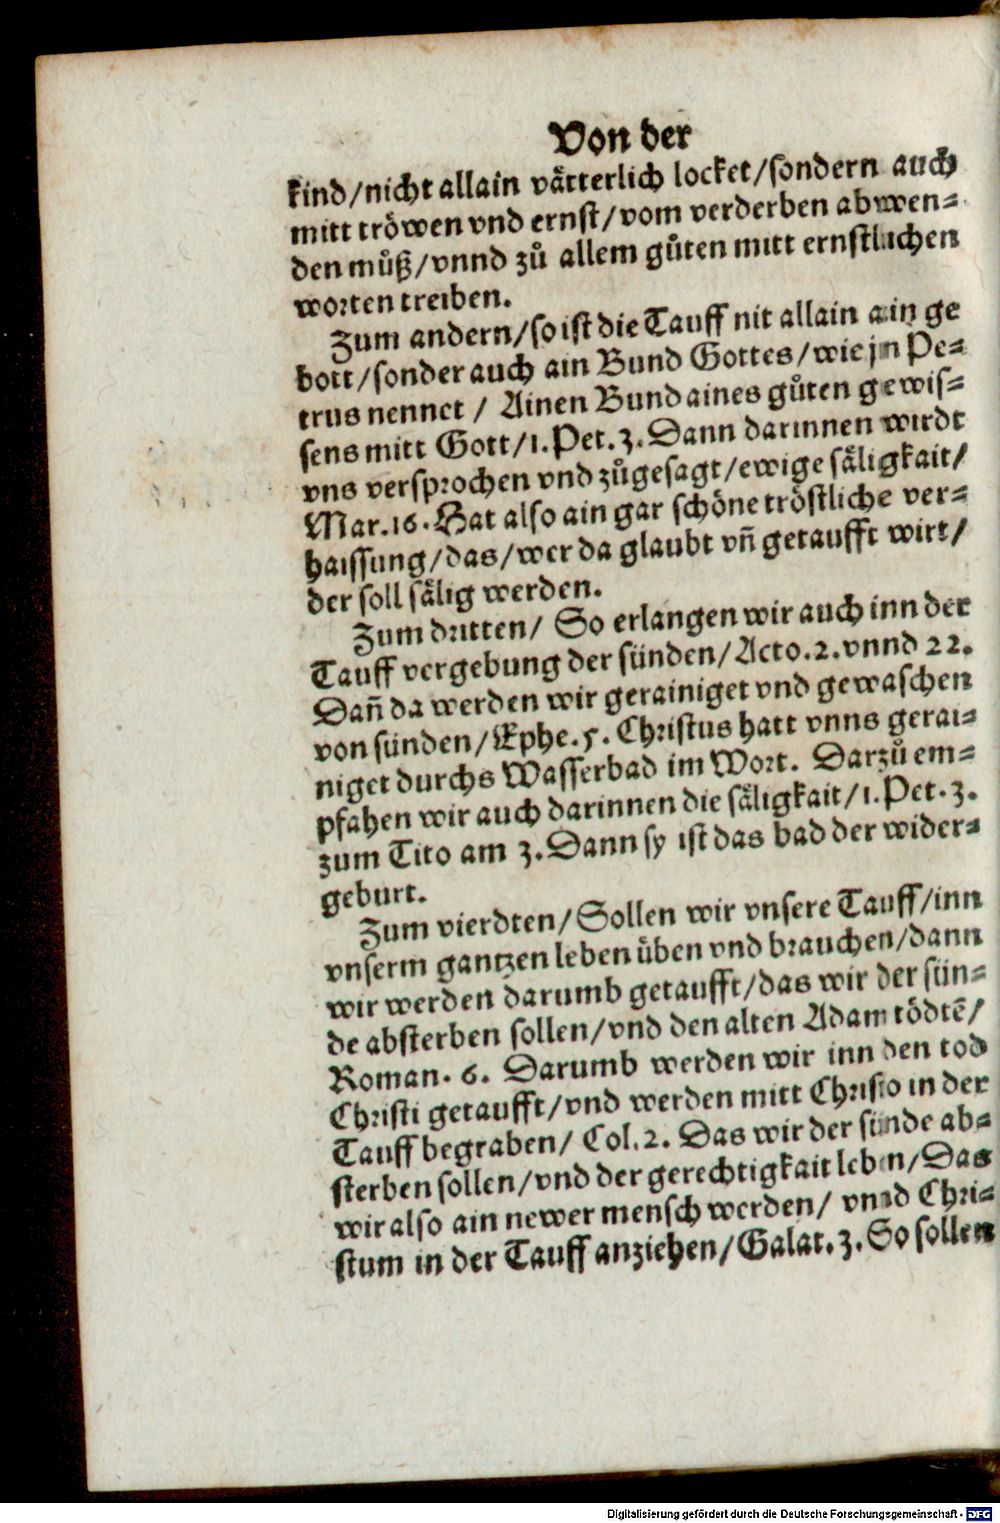 Von der
kind/nicht allain vätterlich locket/sondern auch
mitt tröwen vnd ernst/vom verderben abwen⸗
den můß/vnnd zů allem gůten mitt ernstlichen
worten treiben.
Zum andern/so ist die Tauff nit allain ain ge
bott/sonder auch ain Bund Gottes/wie jn Pe⸗
trus nennet / Ainen Bund aines gůten gewis⸗
sens mitt Gott/1.Pet.3. Dann darinnen wirdt
vns versprochen vnd zůgesagt/ewige säligkait/
Mar.16. Hat also ain gar schöne tröstliche ver⸗
haissung/das/wer da glaubt vñ getaufft wirt/
der soll sälig werden.
Zum dritten/ So erlangen wir auch inn der
Tauff vergebung der sünden/Acto.2.vnnd 22.
Dañ da werden wir gerainiget vnd gewaschen
von sünden/Ephe.5. Christus hatt vnns gerai⸗
niget durchs Wasserbad im Wort. Darzů em⸗
pfahen wir auch darinnen die säligkait/1.Pet.3.
zum Tito am 3. Dann sy ist das bad der wider⸗
geburt.
Zum vierdten/Sollen wir vnsere Tauff/inn
vnserm gantzen leben üben vnd brauchen/dann
wir werden darumb getaufft/das wir der sün⸗
de absterben sollen/vnd den alten Adam tödtē/
Roman. 6. Darumb werden wir inn den tod
Christi getaufft/vnd werden mitt Christo in der
Tauff begraben/ Col.2. Das wir der sünde ab⸗
sterben sollen/vnd der gerechtigkait leben/Das
wir also ain newer mensch werden/ vnnd Chri⸗
stum in der Tauff anziehen/Galat.3. So sollen
Digitalisierung gefördert durch die Deutsche Forschungsgemeinschaft - DFG